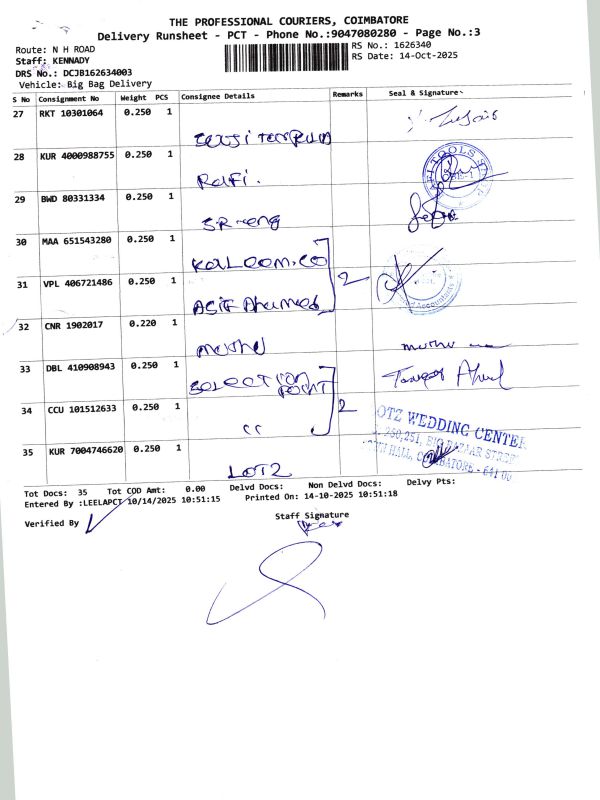 THE PROFESSIONAL COURIERS, COIMBATORE
Delivery Runsheet - PCT - Phone No.:9047080280 - Page No.:3
Route: N H ROAD
RS No.: 1626340
Staff: KENNADY
RS Date: 14-Oct-2025
DRS No.: DCJB162634003
Vehicle: Big Bag Delivery
S No Consignment No Weight PCS Consignee Details Remarks Seal & Signature
27 RKT 10301064 0.250 1
28 KUR 4000988755 0.250 1 Rafi.
29 BWD 80331334 0.250 1
30 MAA 651543280 0.250 1 Kaleem.co
31 VPL 406721486 0.250 1 Asif Ahamed 2
32 CNR 1902017 0.220 1 muthu muthu
33 DBL 410908943 0.250 1 SELECTION POINT
34 CCU 101512633 0.250 1 " 2
35 KUR 7004746620 0.250 1 LOTZ
OTZ WEDDING CENTER
250,251, BIG BAZAAR STREET
TOWN HALL, COIMBATORE - 641 00
Tot Docs: 35 Tot COD Amt: 0.00 Delvd Docs: Non Delvd Docs: Delvy Pts:
Entered By :LEELAPCT 10/14/2025 10:51:15 Printed On: 14-10-2025 10:51:18
Verified By
Staff Signature